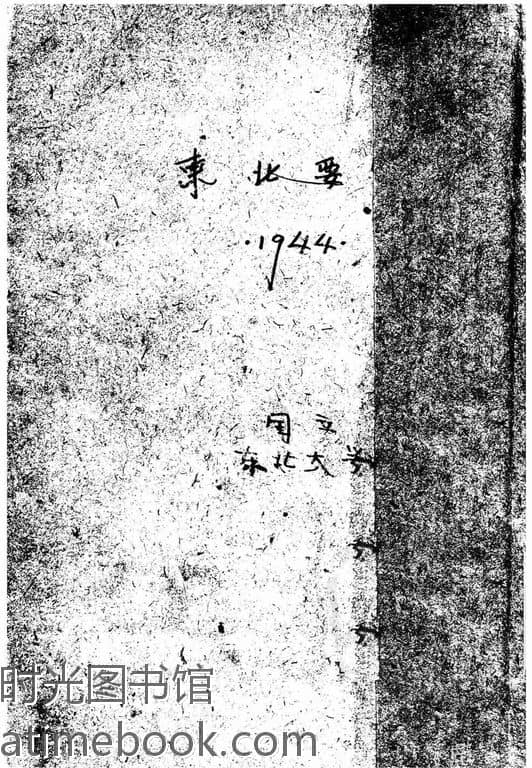 東北要
·1944·
国立
东北大学
时光图书馆
atimebook.com